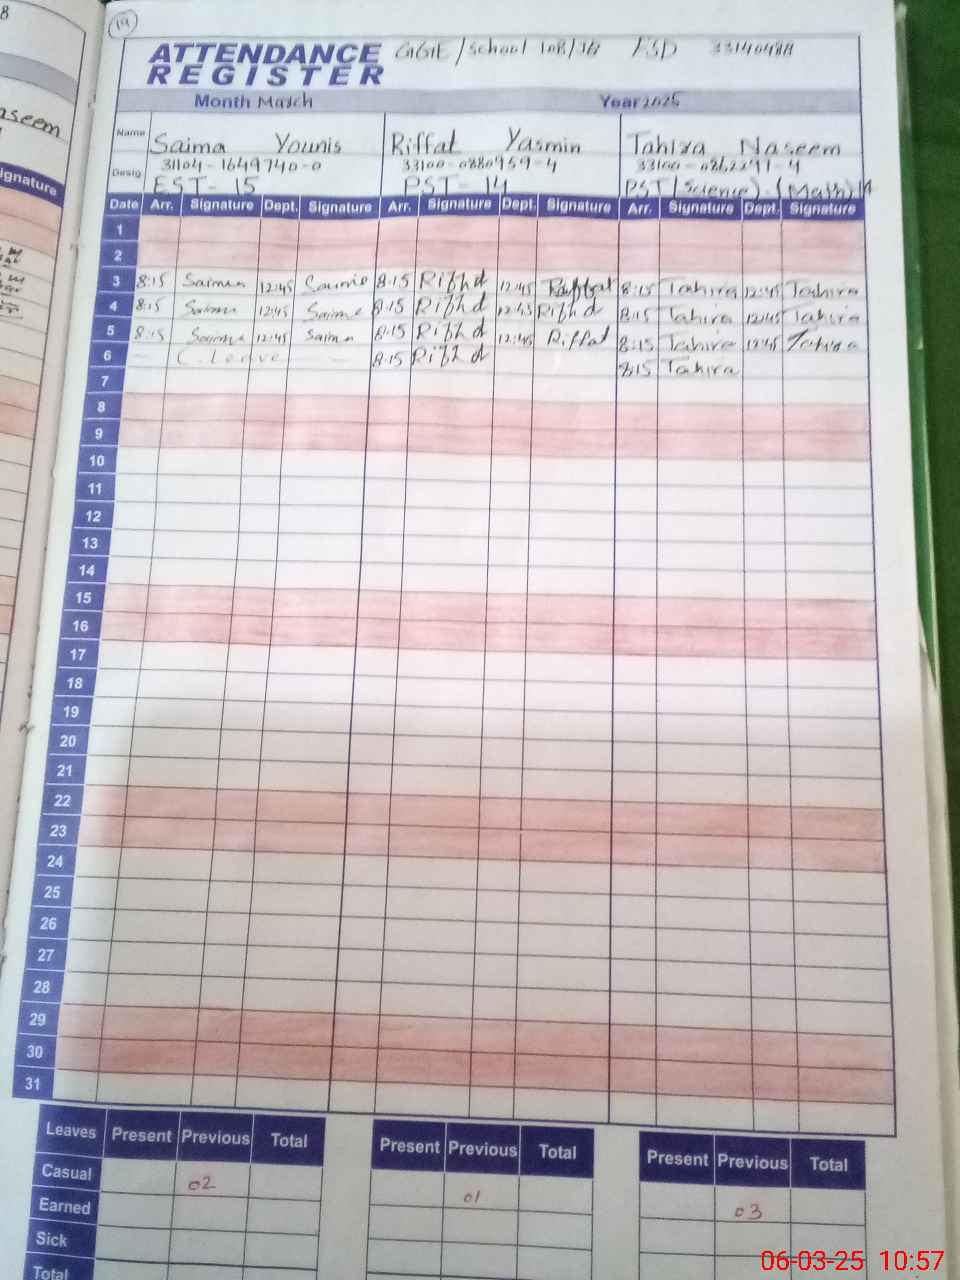 19
8
ATTENDANCE REGISTER
GGIE/School 108/JB FSD 33140488
Month March Year 2025
aseem
Name Saima Younis Riffat Yasmin Tahira Naseem
Desig 31104-1649740-0 33100-0880959-4
EST-15 PST-14 PST(Science).(Math)14
ignature
Date Arr. Signature Dept. Signature Arr. Signature Dept. Signature Arr. Signature Dept. Signature
1
2
3 8:15 Saima 12:45 Saima 8:15 Riffat 12:45 Raffat 8:15 Tahira 12:45 Tahira
4 8:15 Saima 12:45 Saima 8:15 Riffat 12:45 Riffat 8:15 Tahira 12:45 Tahira
5 8:15 Saima 12:45 Saima 8:15 Riffat 12:45 Riffat 8:15 Tahira 12:45 Tahira
6 — C.Leave — 8:15 Riffat 8:15 Tahira
7
8
9
10
11
12
13
14
15
16
17
18
19
20
21
22
23
24
25
26
27
28
29
30
31
Leaves Present Previous Total Present Previous Total Present Previous Total
Casual 02 01 03
Earned
Sick
Total
06-03-25 10:57